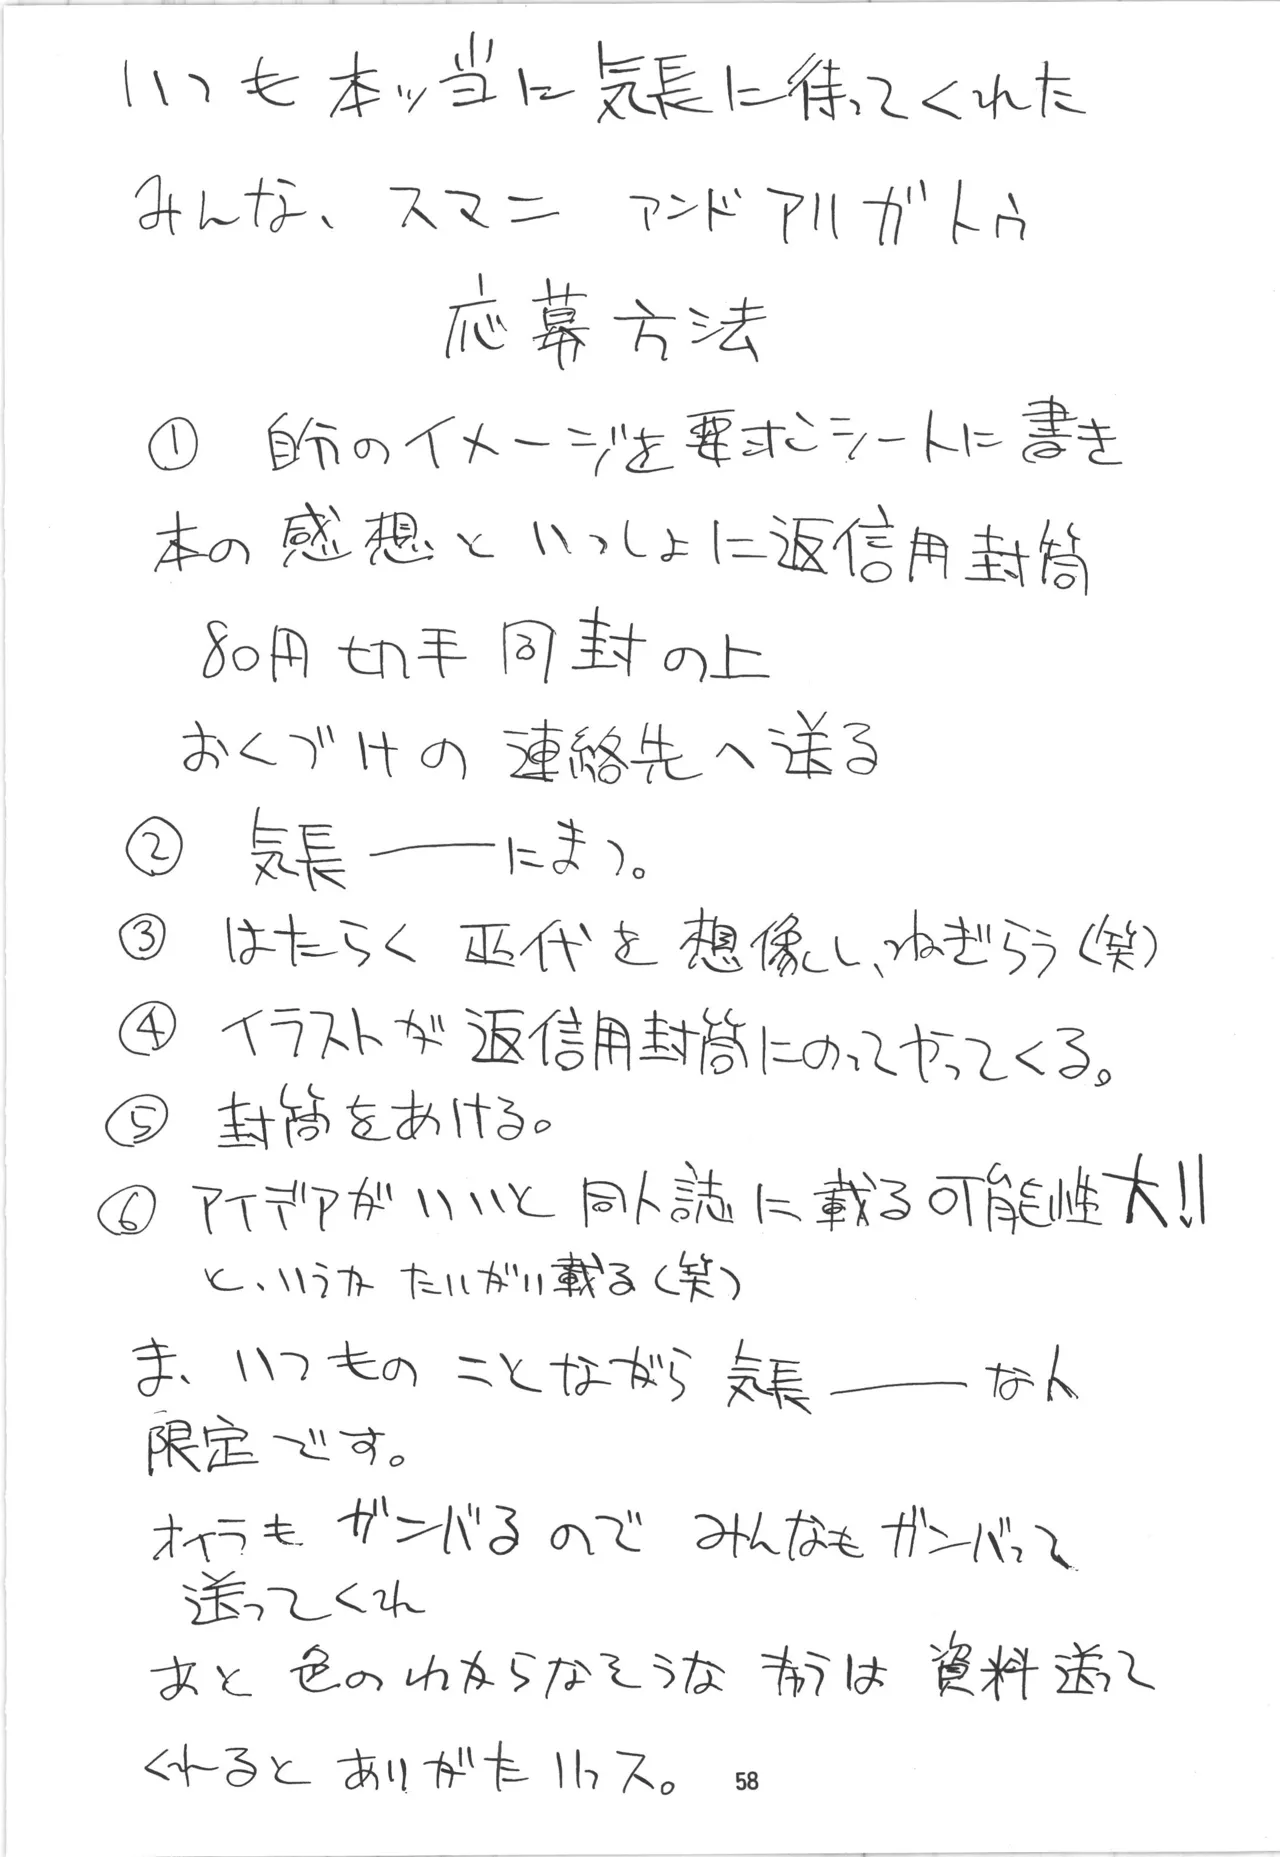 いつも本ッ当に気長に待ってくれた
みんな、スマニ アンドアリガトゥ
応募方法
① 自分のイメージを要求シートに書き
本の感想といっしょに返信用封筒
80円切手同封の上
おくづけの連絡先へ送る
② 気長――にまつ。
③ はたらく 正代を想像し、ねぎらう(笑)
④ イラストが返信用封筒にのってやってくる。
⑤ 封筒をあける。
⑥ アイデアがいいと同人誌に載る可能性大!!
と、いうか たいがい載る(笑)
ま、いつものことながら気長――な人
限定です。
オイラもガンバるのでみんなもガンバって
送ってくれ
あと 色のわからなそうな キャラは 資料送って
くれるとありがたいっス。
58